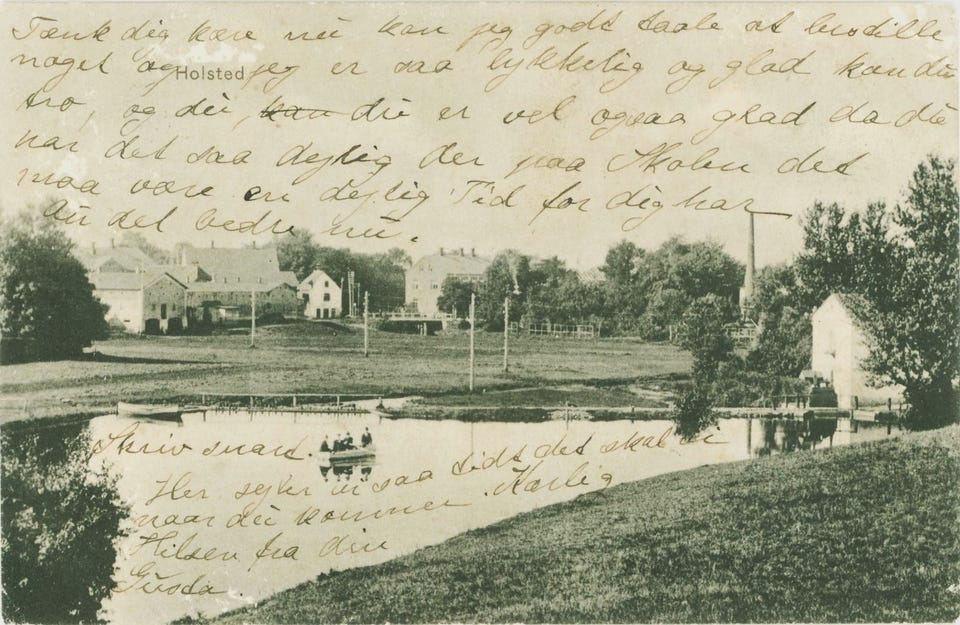 Tænk dig kære nu kan jeg godt taale at bestille
noget og jeg er saa lykkelig og glad kan du
Holsted
tro, og du, kan du er vel ogsaa glad da du
har det saa dejlig der paa Skolen det
maa være en dejlig Tid for dig har
du det bedre nu.
Skriv snart.
Her sejler vi saa tidt det skal vi
naar du kommer. Kærlig
Hilsen fra din